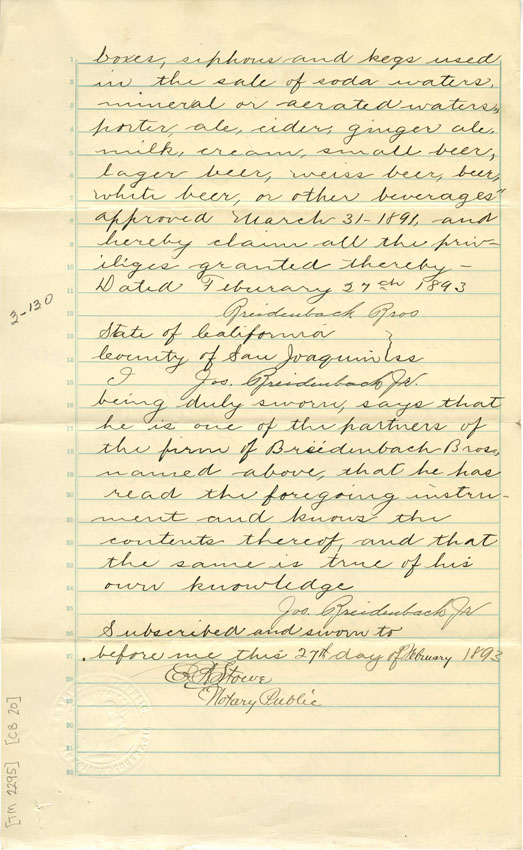 boxes, siphons and kegs used
in the sale of soda waters,
mineral or aerated waters,
porter, ale, cider, ginger ale,
milk, cream, small beer,
lager beer, weiss beer, beer,
white beer, or other beverages"
approved March 31-1891, and
hereby claim all the priv-
iliges granted thereby-
Dated Feburary 27th 1893
Breidenbach Bros
State of California
County of San Joaquin } ss
I Jos. Breidenbach Jr.
being duly sworn, says that
he is one of the partners of
the firm of Breidenbach Bros,
named above, that he has
read the foregoing instru-
ment and knows the
contents thereof, and that
the same is true of his
own knowledge
Jos. Breidenbach Jr
Subscribed and sworn to
before me this 27th day of February 1893
Stowe
Notary Public
3-130
[TM 2295] [CB 20]